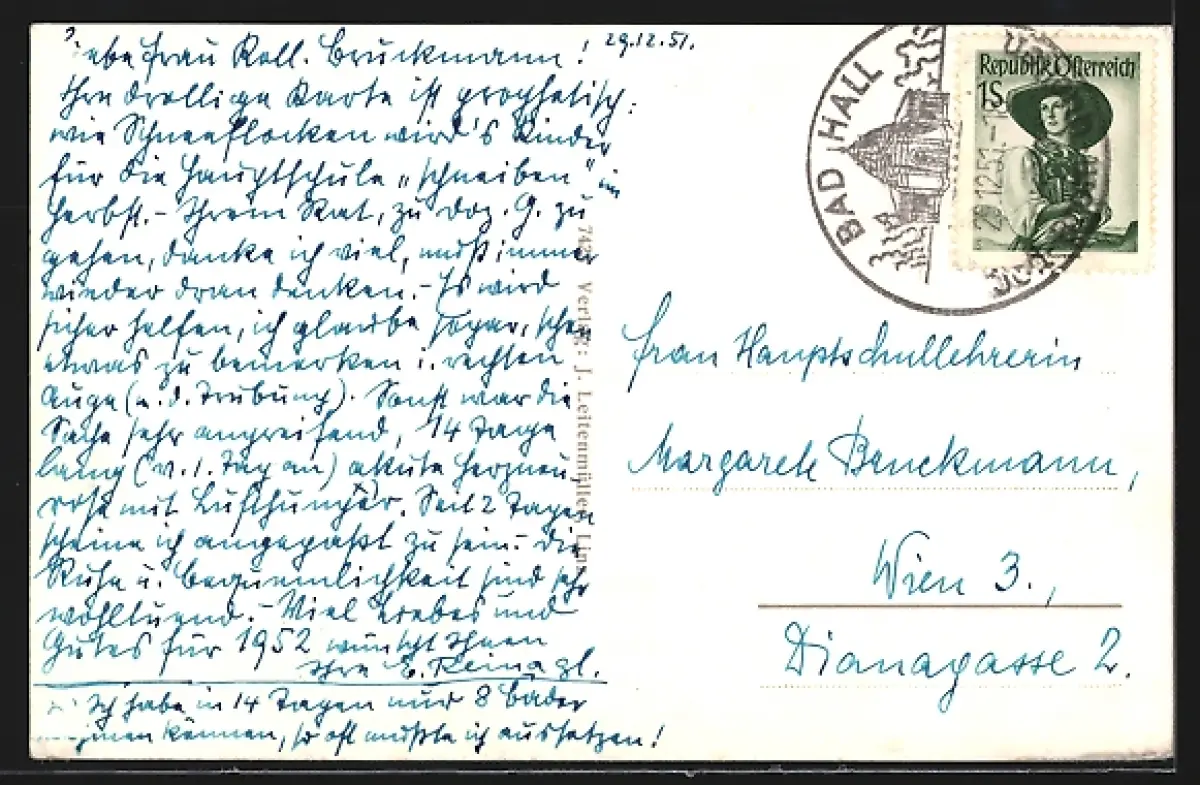 29.12.51.
Liebe Frau Koll. Bruckmann!
Ihre drollige Karte ist prophetisch:
wie Schneeflocken wird's Kinder
für die Hauptschule „schneiben" im
Herbst. - Ihrem Rat, zu Doz. G. zu
gehen, danke ich viel, muß immer
wieder dran denken. - Es wird
sicher helfen, ich glaube sogar, schon
etwas zu bemerken i. rechten
Auge (a. d. Trübung). Sonst war die
Sache sehr angreifend, 14 Tage
lang (v. 1. Tag an) akute Herzneu-
rose mit Lufthunger. Seit 2 Tagen
scheine ich angepaßt zu sein. - Die
Ruhe u. Bequemlichkeit sind sehr
wohltuend. - Viel Liebes und
Gutes für 1952 wünscht Ihnen
Ihre E.
Ich habe in 14 Tagen nur 8 Bäder
nehmen können, so oft mußte ich aussetzen!
Verlag: J. Leitenmüller, Linz
BAD HALL
29.12.51.
Republik Österreich
1S
Frau Hauptschullehrerin
Margarete Bruckmann,
Wien 3.,
Dianagasse 2.